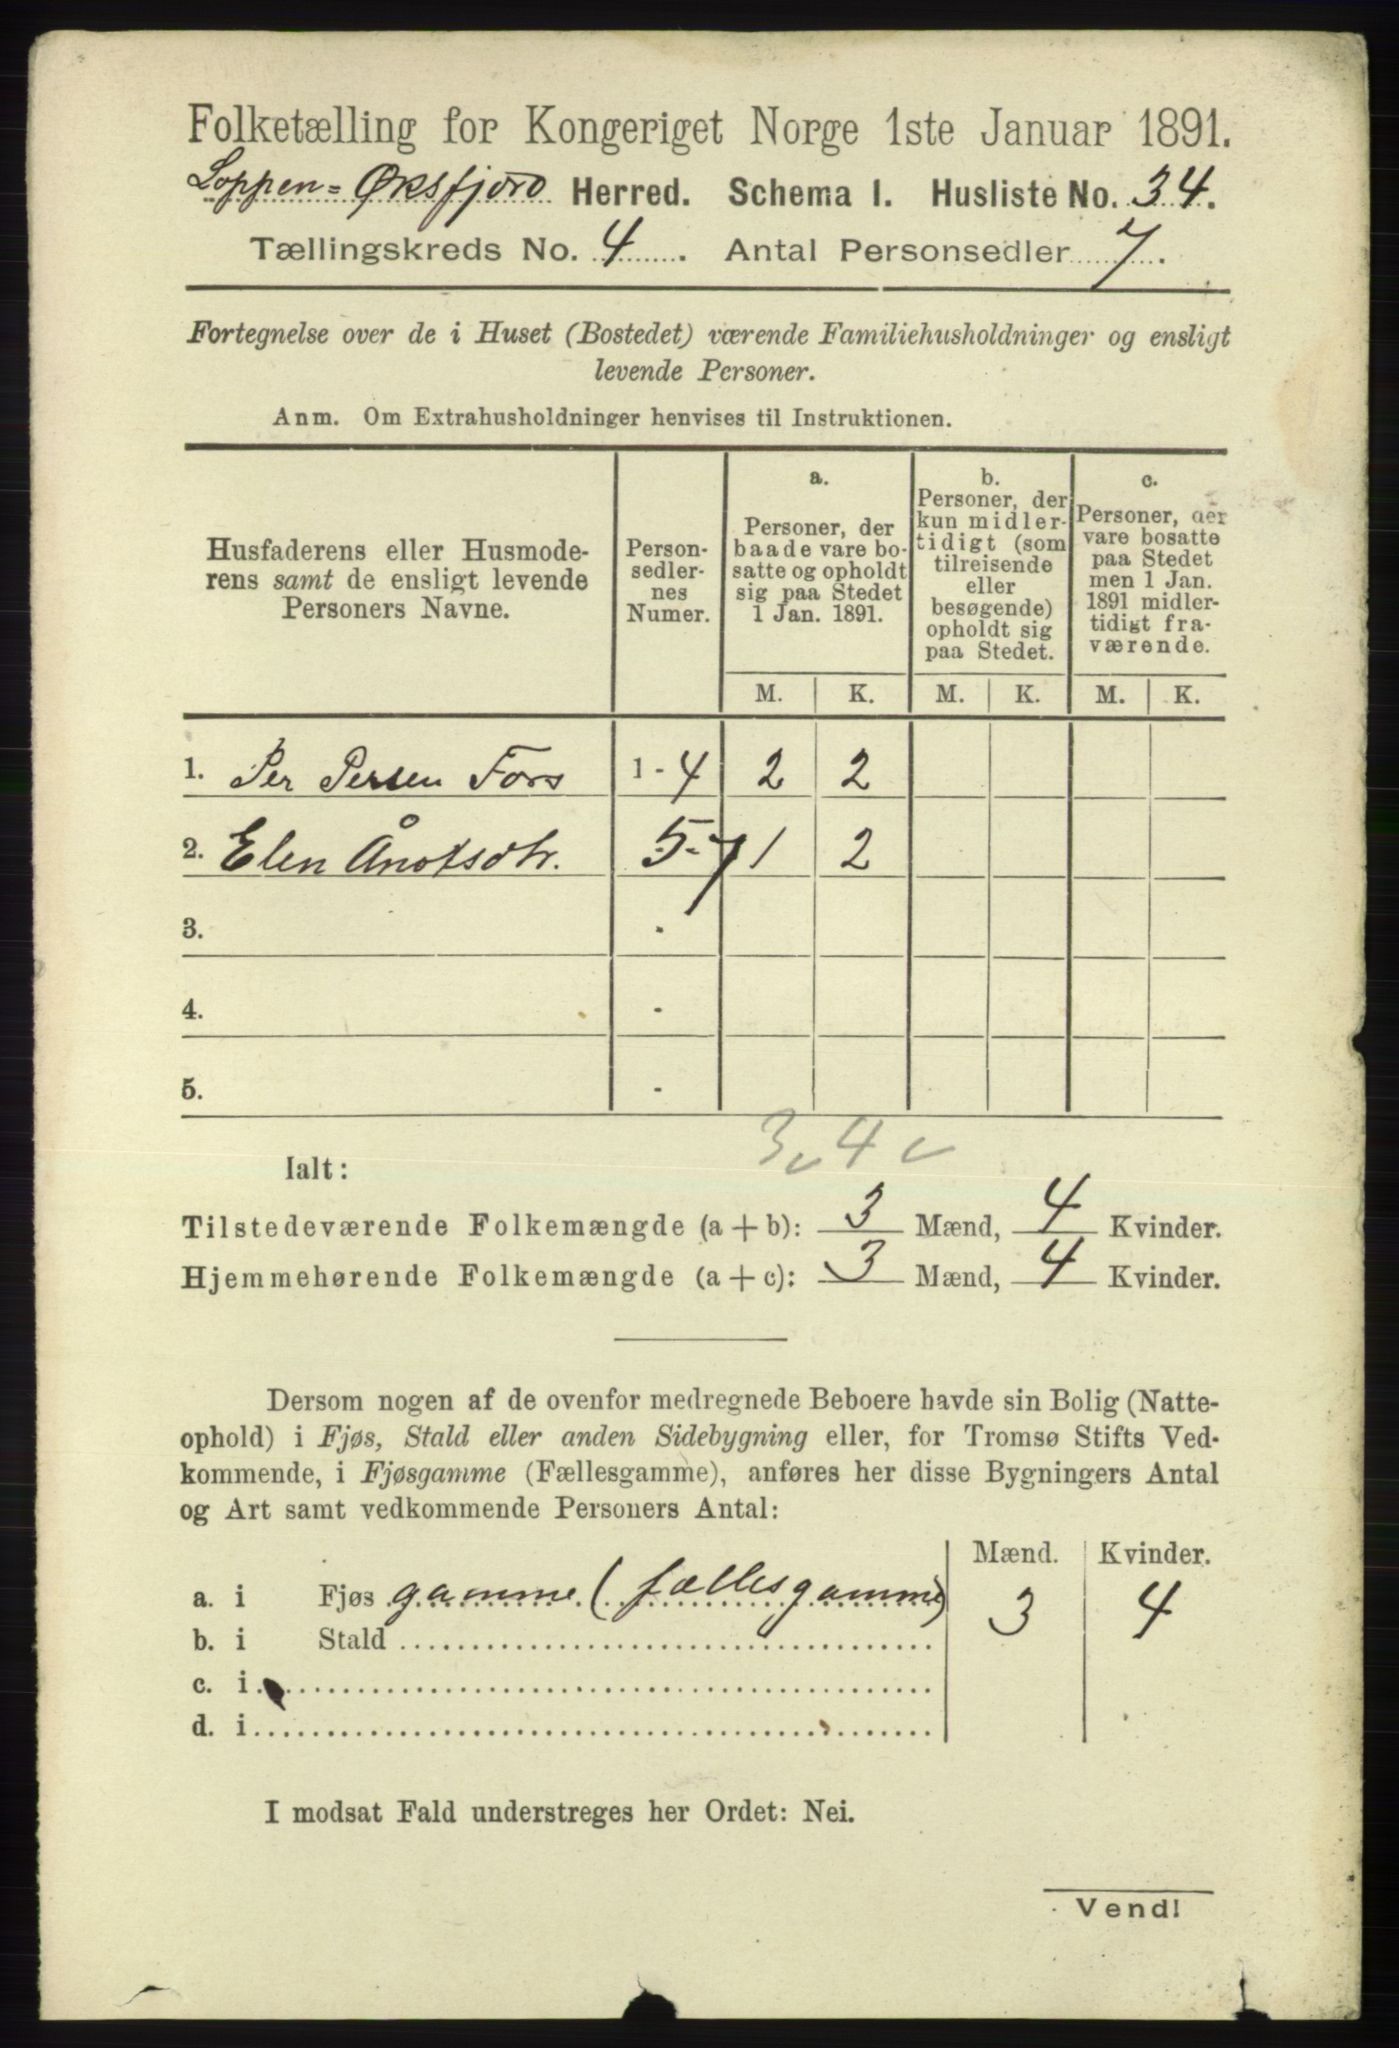 Folketælling for Kongeriget Norge 1ste Januar 1891.
Loppen=Øksfjord Herred. Schema I. Husliste No. 34.
Tællingskreds No. 4. Antal Personsedler 7.
Fortegnelse over de i Huset (Bostedet) værende Familiehusholdninger og ensligt
levende Personer.
Anm. Om Extrahusholdninger henvises til Instruktionen.
Husfaderens eller Husmode-
rens samt de ensligt levende
Personers Navne.
Person-
sedler-
nes
Numer.
a.
Personer, der
baade vare bo-
satte og opholdt
sig paa Stedet
1 Jan. 1891.
b.
Personer, der
kun midler-
tidigt (som
tilreisende
eller
besøgende)
opholdt sig
paa Stedet.
c.
Personer, der
vare bosatte
paa Stedet
men 1 Jan.
1891 midler-
tidigt fra-
værende.
M. K. M. K. M. K.
1. Per Persen Fors 1-4 2 2
2. Elen 5-7 1 2
3. -
4. -
5. -
3 4
Ialt:
Tilstedeværende Folkemængde (a + b): 3 Mænd, 4 Kvinder.
Hjemmehørende Folkemængde (a + c): 3 Mænd, 4 Kvinder.
Dersom nogen af de ovenfor medregnede Beboere havde sin Bolig (Natte-
ophold) i Fjøs, Stald eller anden Sidebygning eller, for Tromsø Stifts Ved-
kommende, i Fjøsgamme (Fællesgamme), anføres her disse Bygningers Antal
og Art samt vedkommende Personers Antal:
Mænd. Kvinder.
a. i Fjøs gamme (fællesgamme) 3 4
b. i Stald
c. i
d. i
I modsat Fald understreges her Ordet: Nei.
Vend!